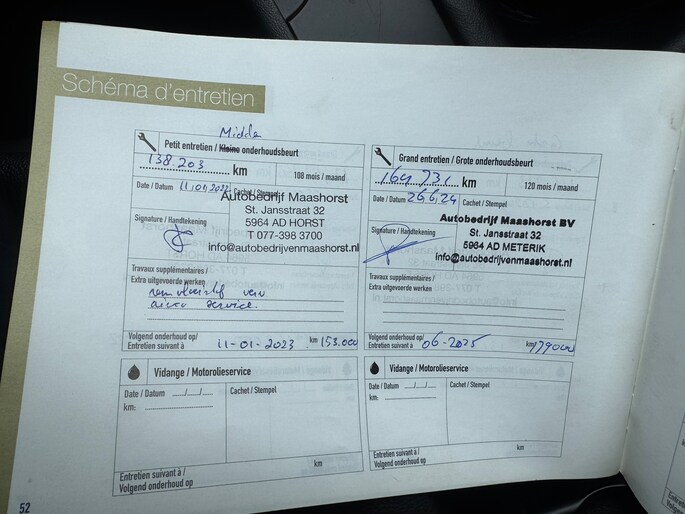 Schéma d'entretien
Midde
Petit entretien / Kleine onderhoudsbeurt
138.203 km
108 mois / maand
Date / Datum 11.01.2022 Cachet / Stempel
Autobedrijf Maashorst
St. Jansstraat 32
5964 AD HORST
T 077-398 3700
info@autobedrijvenmaashorst.nl
Signature / Handtekening
Travaux supplémentaires /
Extra uitgevoerde werken
remvloeistof verv
airco service.
Volgend onderhoud op/
Entretien suivant à 11-01-2023 km 153.000
Vidange / Motorolieservice
Date / Datum ..../..../....
Cachet / Stempel
km:
Entretien suivant à /
Volgend onderhoud op
km
Grand entretien / Grote onderhoudsbeurt
164.731 km
120 mois / maand
Date / Datum 26.6.24 Cachet / Stempel
Autobedrijf Maashorst BV
St. Jansstraat 32
5964 AD METERIK
info@autobedrijvenmaashorst.nl
Signature / Handtekening
Travaux supplémentaires /
Extra uitgevoerde werken
Volgend onderhoud op/
Entretien suivant à 06-2025 km 179000
Vidange / Motorolieservice
Date / Datum ..../..../....
Cachet / Stempel
km:
Entretien suivant à /
Volgend onderhoud op
km
52